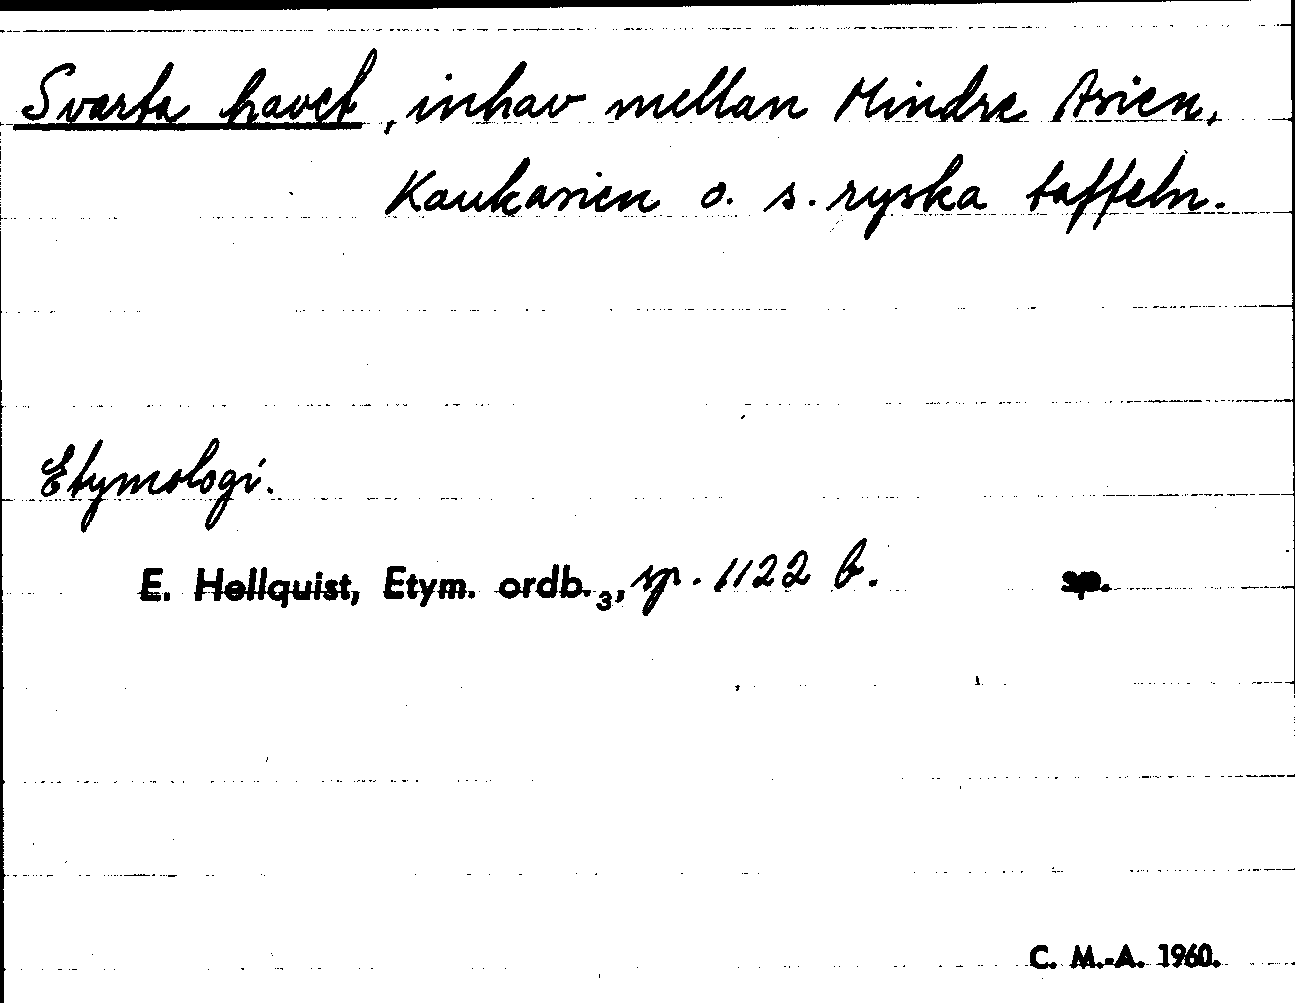 Svarta havet, inhav mellan Mindre Asien,
Kaukasien o. s. ryska taffeln.
Etymologi.
E. Hellquist, Etym. ordb.3, sp. 1122 b. sp.
C. M.-A. 1960.